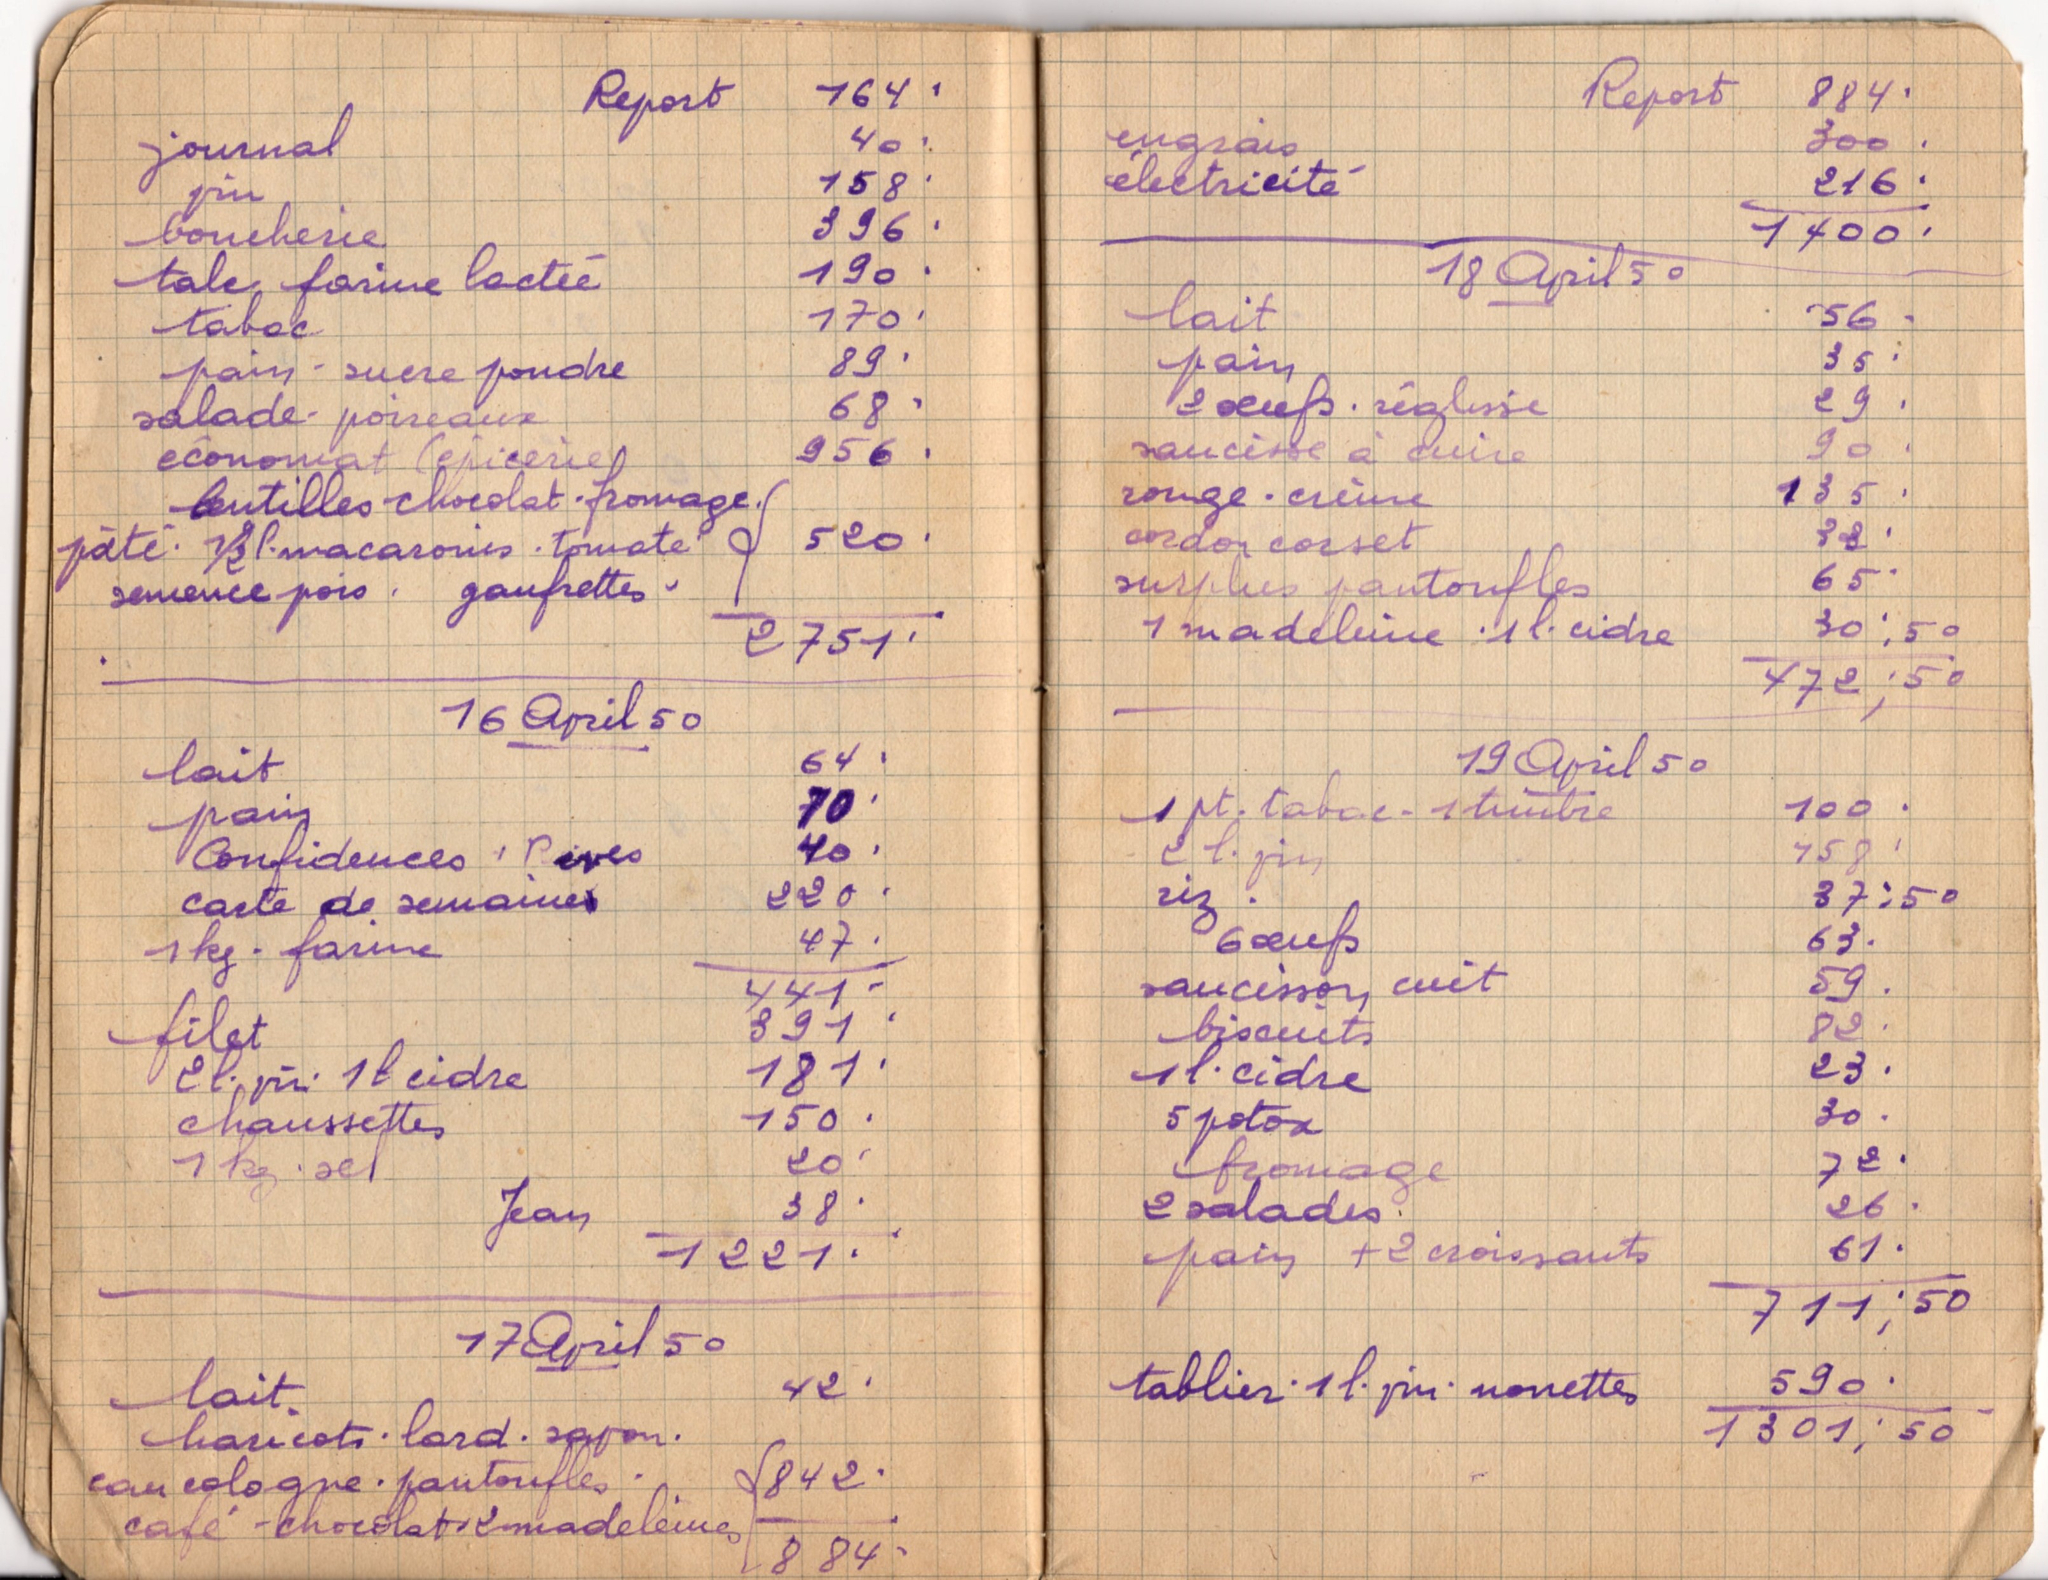 Report 164.
journal 40.
pin 158.
boucherie 396.
talc, farine lactée 190.
tabac 170.
pain - sucre poudre 89.
salade - poireaux 68.
économat (épicerie) 956.
lentilles - chocolat - fromage.
pâté. 1/2 l. macaronis. tomate 520.
semence pois. gaufrettes.
2751.
16 April 50
lait 64.
pain 70.
Confidences + Rêves 40.
carte de semaine 220.
1 kg. farine 47.
441 -
filet 391.
2 l. pin. 1 l cidre 181.
chaussettes 150.
1 kg. sel 20.
Jean 38.
1221.
17 April 50
lait. 42.
haricots. lard. savon.
eau cologne. pantoufles. 842.
café - chocolat + 2 madeleines
884.
Report 884.
engrais 300.
électricité 216.
1400.
18 April 50
lait 56.
pain 35.
2 œufs. réglisse 29.
saucisse à cuire 90.
rouge. crème 135.
cordon corset 32.
surplus pantoufles 65.
1 madeleine. 1 l. cidre 30,50
472,50
19 April 50
1 pt. tabac - 1 timbre 100.
2 l. pin 158.
riz. 37,50
6 œufs 63.
saucisson cuit 59.
biscuits 82.
1 l. cidre 23.
5 potox 30.
fromage 72.
2 salades. 26.
pain + 2 croissants 61.
711,50
tablier. 1 l. pin. nonettes 590.
1301,50